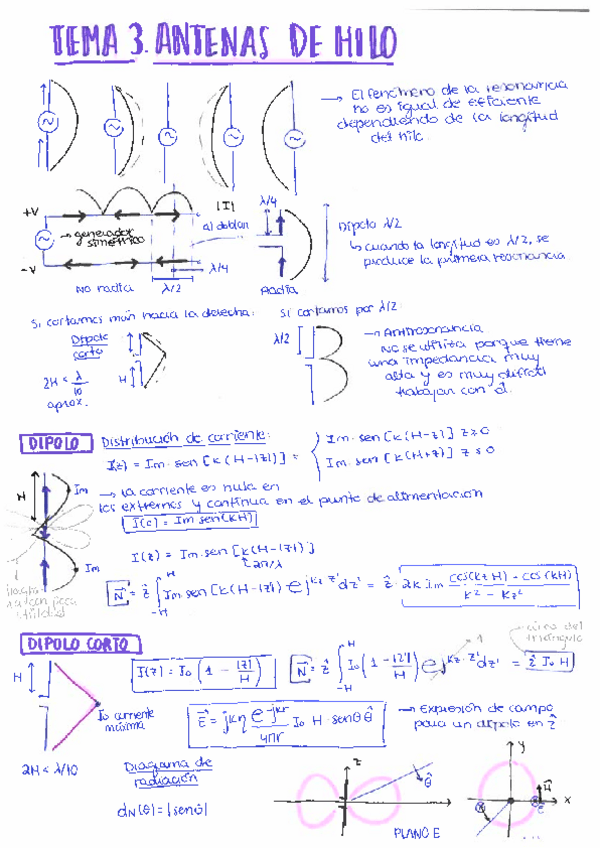 TEMA 3. ANTENAS DE HILO
→ El fenómeno de la resonancia
no es igual de eficiente
dependiendo de la longitud
del hilo.
+V
-V
→ generador
simétrico
No radia
λ/2
λ/4
|I|
al doblar
λ/4
Radia
Dipolo λ/2
↳ cuando la longitud es λ/2, se
produce la primera resonancia
Si cortamos más hacia la derecha:
Dipolo
corto
2H < λ/10
aprox.
H
Si cortamos por λ/2:
λ/2
→ Antirresonancia
No se utiliza porque tiene
una impedancia muy
alta y es muy difícil
trabajar con él.
DIPOLO
Distribución de corriente:
I(z) = Im · sen [k(H-|z|)] = { Im · sen [k(H-z)] z ≥ 0
Im · sen [k(H+z)] z ≤ 0
H
Im
Im
→ La corriente es nula en
los extremos y continua en el punto de alimentación
I(0) = Im sen(kH)
I(z) = Im · sen [k(H-|z|)]
↳ 2π/λ
N = ẑ ∫ Im · sen [k(H-|z'|)] e^{jkz z'} dz' = ẑ · 2k Im (cos(kz H) - cos(kH)) / (k² - kz²)
H
-H
DIPOLO CORTO
H
I(z) = Io (1 - |z|/H)
N = ẑ ∫ Io (1 - |z'|/H) e^{jkz · z'} dz' = ẑ Io H
H
-H
área del
triángulo
Io corriente
máxima
E = jkη e^{-jkr}/4πr Io H · senθ θ̂
→ Expresión de campo
para un dipolo en ẑ
2H < λ/10
Diagrama de
radiación
dN(θ) = |senθ|
z
θ̂
PLANO E
y
x
H
E